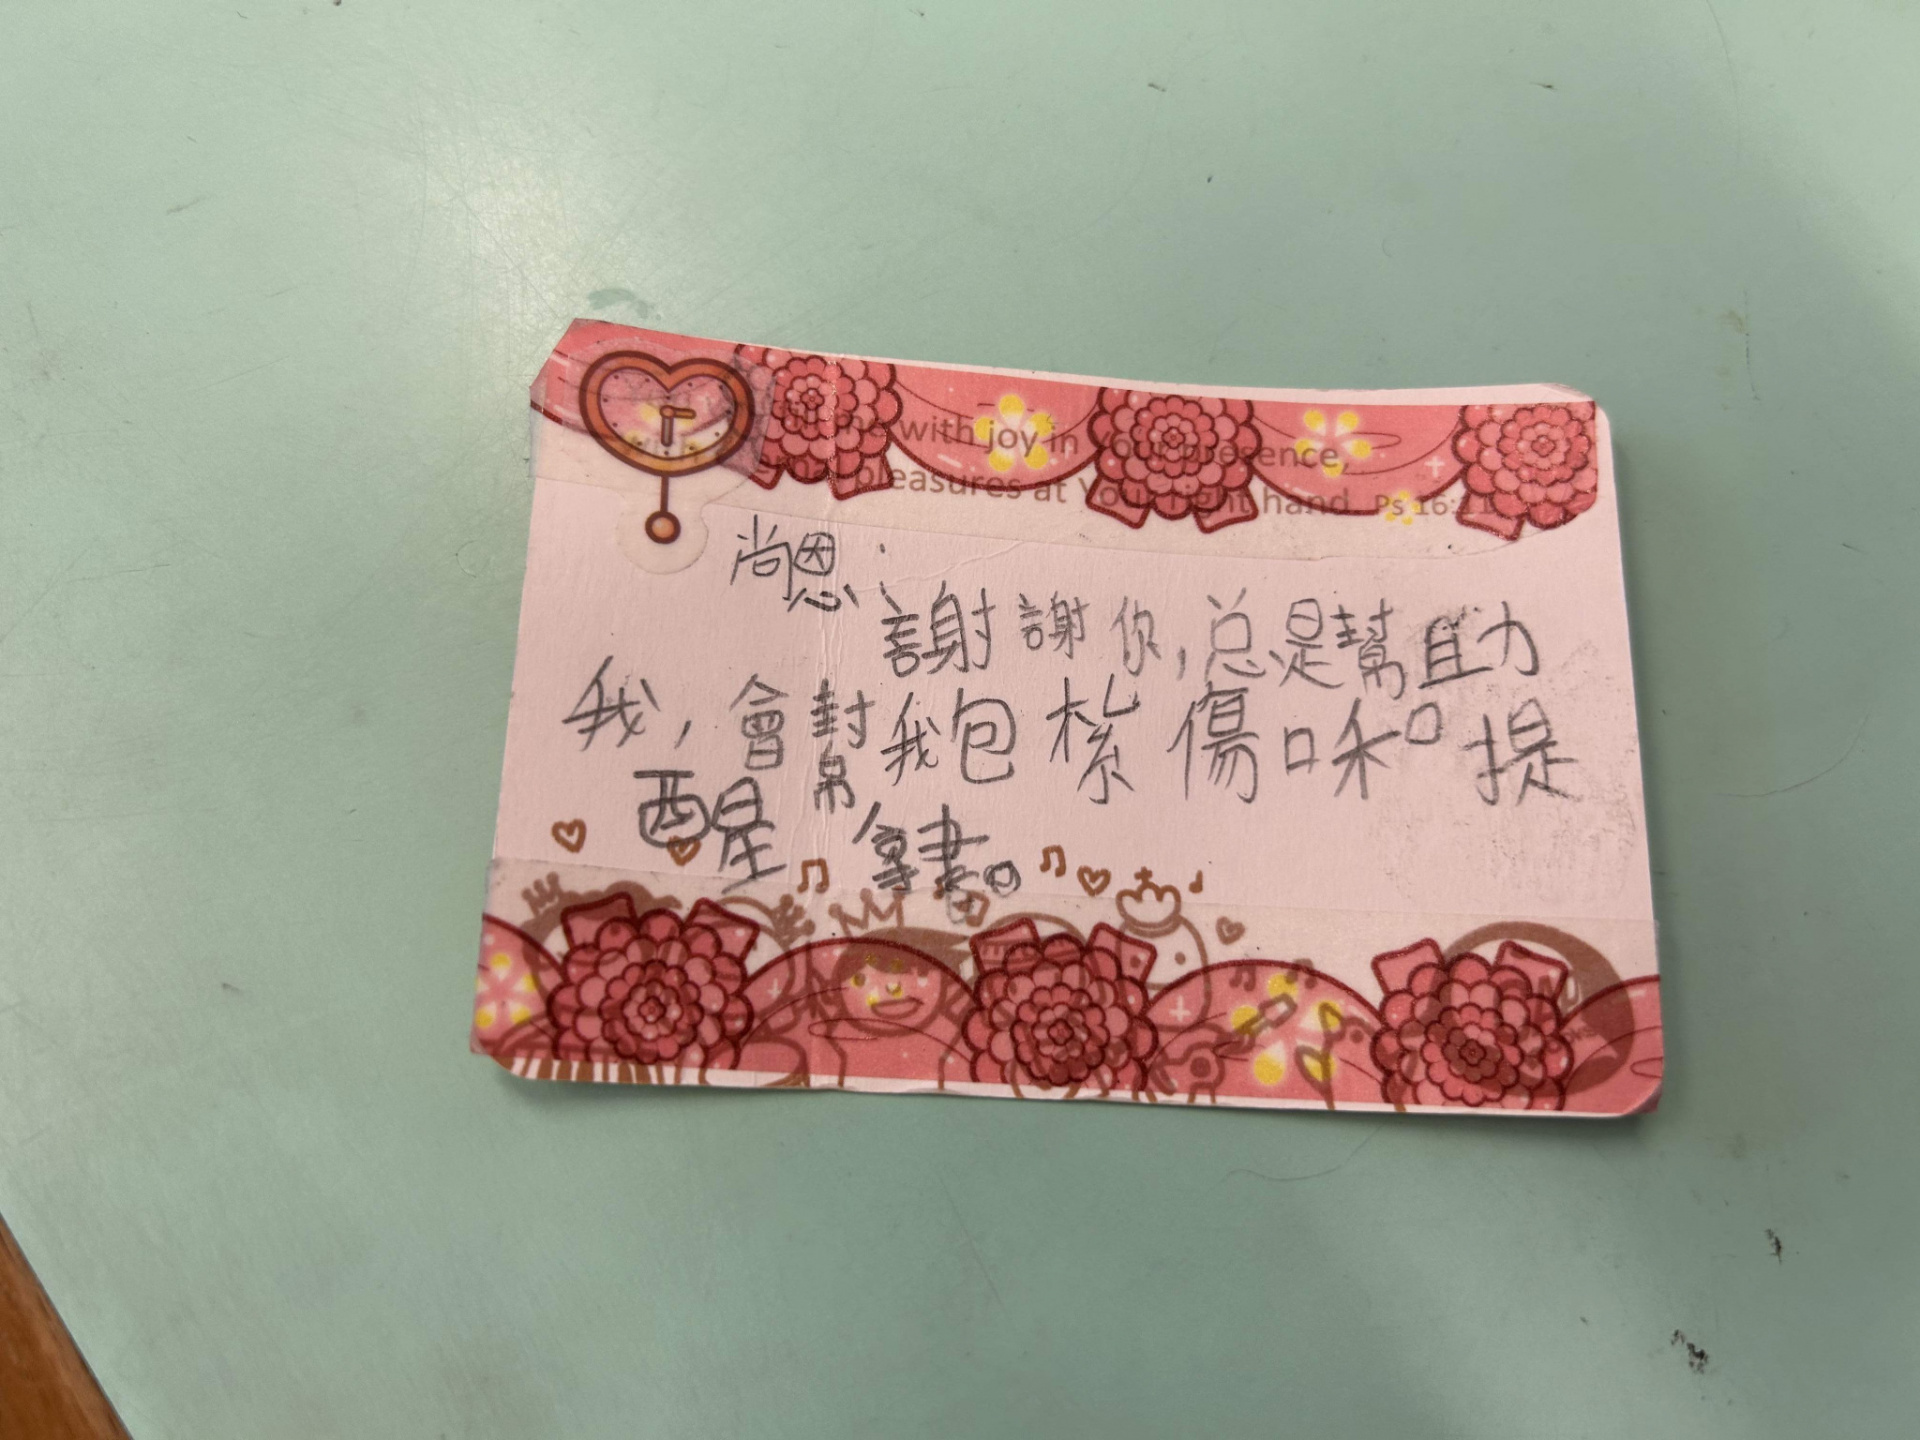 me with joy in Your presence,
pleasures at Your right hand. Ps 16:11
尚恩：
謝謝你，总是幫助
我，會幫我包紮傷口和提
醒 拿書。